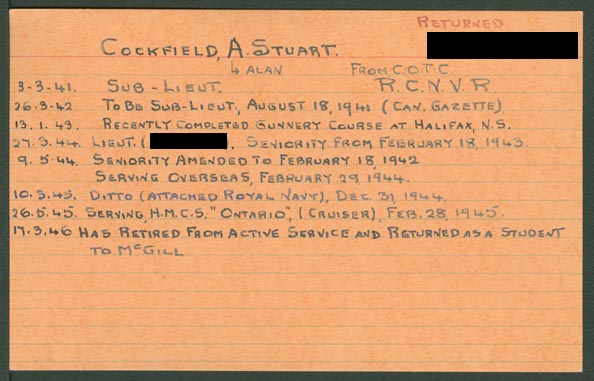 RETURNED
COCKFIELD, A. STUART.
↳ ALAN FROM C.O.T.C.
3-3-41. SUB-LIEUT. R.C.N.V.R.
26.3-42 TO BE SUB-LIEUT., AUGUST 18, 1941 (CAN. GAZETTE)
13.1.43. RECENTLY COMPLETED GUNNERY COURSE AT HALIFAX, N.S.
27.3.44. LIEUT. ( ), SENIORITY FROM FEBRUARY 18, 1943.
9.5.44. SENIORITY AMENDED TO FEBRUARY 18, 1942
SERVING OVERSEAS, FEBRUARY 29, 1944.
10.3.45. DITTO (ATTACHED ROYAL NAVY), DEC. 31, 1944.
26.5.45. SERVING, H.M.C.S. "ONTARIO", (CRUISER), FEB. 28, 1945.
17.3.46 HAS RETIRED FROM ACTIVE SERVICE AND RETURNED AS A STUDENT
TO MCGILL